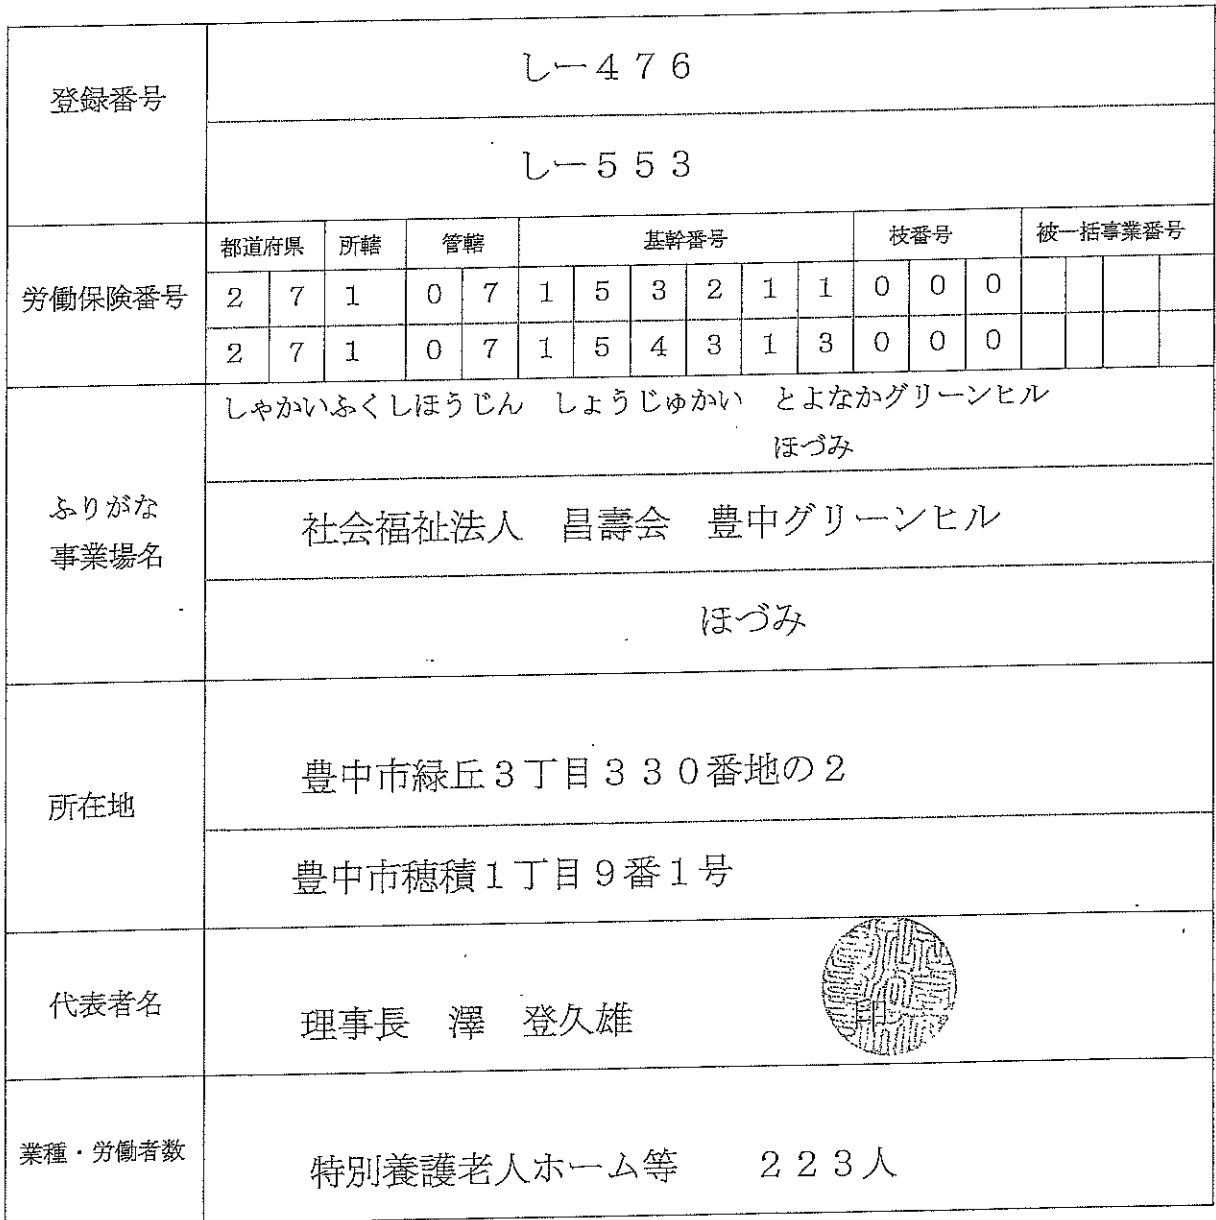 登録番号
しー４７６
しー５５３
労働保険番号
都道府県 所轄 管轄 基幹番号 枝番号 被一括事業番号
2 7 1 0 7 1 5 3 2 1 1 0 0 0
2 7 1 0 7 1 5 4 3 1 3 0 0 0
ふりがな
事業場名
しゃかいふくしほうじん　しょうじゅかい　とよなかグリーンヒル
ほづみ
社会福祉法人　昌壽会　豊中グリーンヒル
ほづみ
所在地
豊中市緑丘３丁目３３０番地の２
豊中市穂積１丁目９番１号
代表者名
理事長　澤　登久雄
印
業種・労働者数
特別養護老人ホーム等　２２３人